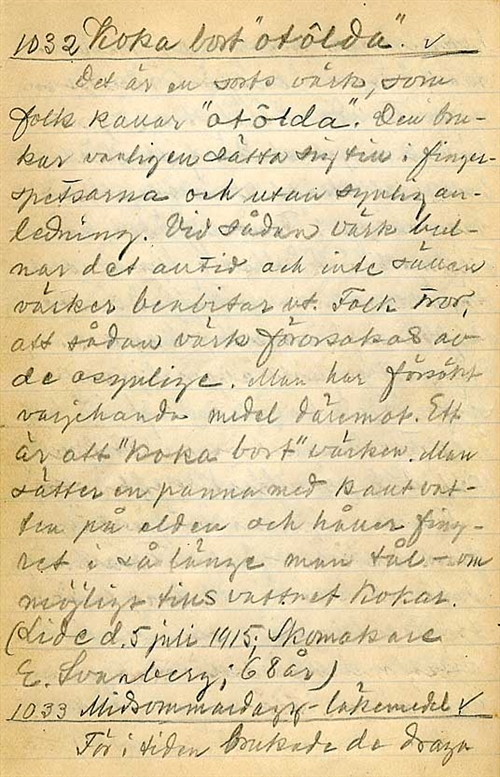 1032 Koka bort "otôlda". ✓
Det är en sorts värk, som
folk kallar "otôlda". Den bru-
kar vanligen sätta sig till i finger-
spetsarna och utan synlig an-
ledning. Vid sådan värk bul-
nar det alltid och inte sällan
värker benbitar ut. Folk tror,
att sådan värk förorsakas av
de osynlige. Man har försökt
varjehanda medel däremot. Ett
är att "koka bort" värken. Man
sätter en panna med kallt vat-
ten på elden och håller fing-
ret i så länge man tål – om
möjligt tills vattnet kokar.
(Lide d. 5 juli 1915; Skomakare
E. Svanberg; 68 år)
1033 Midsommardagg-läkemedel ✓
För i tiden brukade de draga